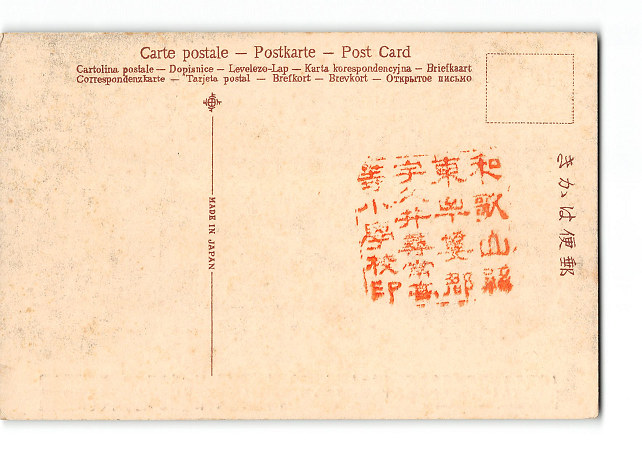 Carte postale — Postkarte — Post Card
Cartolina postale — Dopisnice — Levelezo-Lap — Karta korespondencyjna — Briefkaart
Correspondenzkarte — Tarjeta postal — Brefkort — Brevkort — Открытое письмо
MADE IN JAPAN
郵便はかき
和歌山縣
東牟婁郡
宇久井尋常高
等小學校印